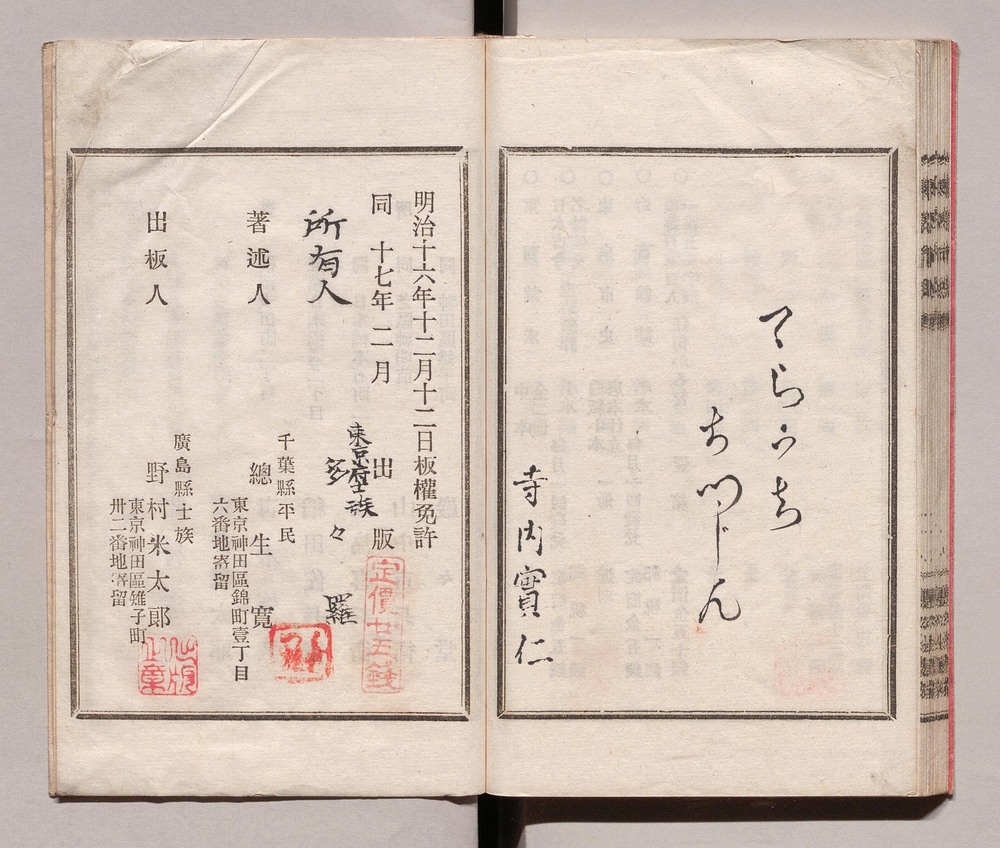 てらうち
ちつじん
寺内實仁
明治十六年十二月十二日板權免許
同 十七年 二月 出版
定價廿五錢
所有人
東京府士族
々 羅
著述人
千葉縣平民
總生寛
東京神田區錦町壹丁目
六番地寄留
出板人
廣島縣士族
野村米太郎
東京神田區雉子町
卅二番地寄留